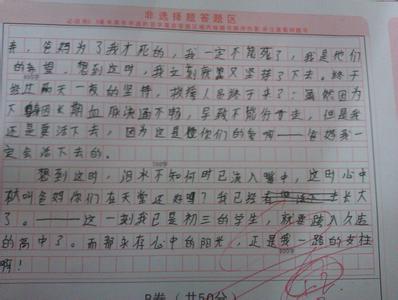 非选择题答题区
来，爸妈为了我才死的，我一定不能死了，我是他们
的希望，想到这时，我立刻就又坚持了下去。终于
经过两天一夜的坚持，救援人员终于来了；虽然因为
下 因长期血液流通不畅，导致不能行走，但是我
还是要活下去，因为这是你们的 ——爸妈我一
定会活下去的。
想到这时，泪水不知何时已流入嘴中，这时心中
就叫爸妈你们在天堂还好吗？我已经 长大
了。——这一刻我已是初三的学生，就要踏入久违
的高中了。而那朵在心中的阳光，正是我一路的支柱
啊！
B卷（共50分）